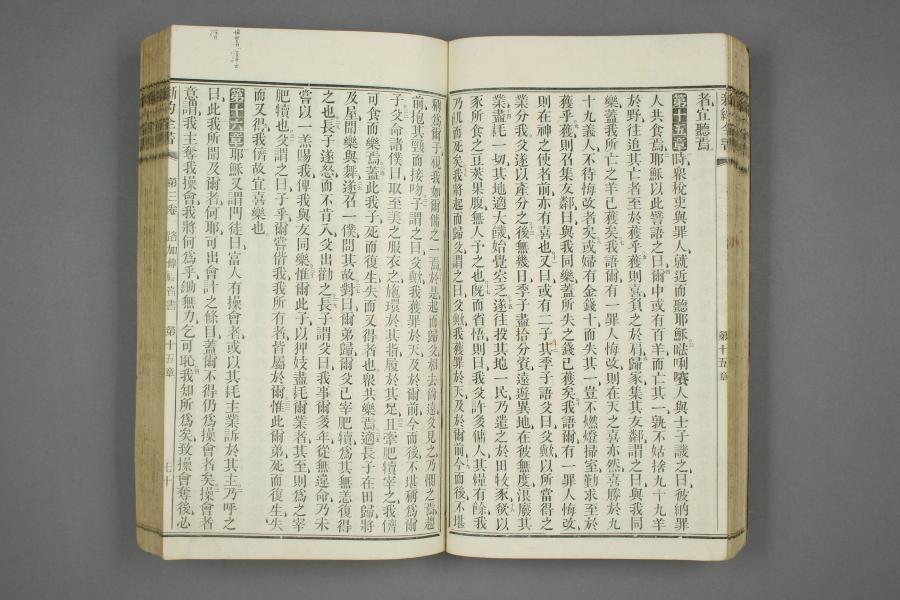 者、宜聽焉、
第十五章時、衆稅吏與罪人就近而聽耶穌、𠵽唎㘔人與士子議之曰、彼納罪
人共食焉、耶穌以此譬語之曰、爾中或有百羊而亡其一、孰不姑捨九十九羊
於野、往追其亡者、至於獲乎、獲則喜負之於肩、歸家集其友鄰、謂之曰、與我同
樂、蓋我所亡之羊已獲矣、我語爾、有一罪人悔改、則在天之喜亦然、喜勝於九
十九義人、不待悔改者矣、或婦有金錢十而失其一、豈不燃燈掃室、勤求至於
獲乎、獲則召集友鄰曰、與我同樂、蓋所失之錢已獲矣、我語爾、有一罪人悔改、
則在神之使者前亦有喜也、又曰、或有二子、其季子語父曰、父歟、以所當得之
業分我、父遂以產分之、後無幾日、季子盡拾分資、遠遊異地、在彼無度、浪廢其
業、盡耗一切、其地適大饑、始覺空乏、遂往投其地一民、乃遣之於田牧豕、欲以
豕所食之豆莢果腹、無人予之也、旣而省悟、則曰、我父許多傭人、其糧有餘、我
乃飢而死矣、我將起而歸父、謂之曰、父歟、我獲罪於天及於爾前、今而後、不堪
稱爲爾子、視我如爾傭之一焉、於是起而歸父、相去尙遠、父見之、乃憫之焉、趨
前抱其頸而接吻、子謂之曰、父歟、我獲罪於天及於爾前、今而後、不堪稱爲爾
子、父命諸僕曰、取至美之服衣之、施環於其指、履於其足、且牽肥犢宰之、我儕
可食而樂焉、蓋此我子、死而復生、失而又得者也、衆共樂焉、適長子在田、歸將
及屋、聞樂與舞、遂召一僕、問其故、對曰、爾弟歸、爾父已宰肥犢、爲其無恙復得
之也、長子遂怒而不肯入、父出勸之、長子謂父曰、我事爾多年、從無違命、乃未
嘗以一羔賜我、俾我與友同樂、惟爾此子、以狎妓盡耗爾業者、其至則爲之宰
肥犢也、父謂之曰、子乎、爾嘗偕我、我所有者、皆屬於爾、惟此爾弟、死而復生、失
而又得、我儕故宜喜樂也、
第十六章耶穌又謂門徒曰、富人有操會者、或以其耗主業訴於其主、乃呼之
曰、此我所聞及爾者何耶、可出會計之條目、蓋爾不得仍爲操會者矣、操會者
意謂、我主奪我操會、我將何爲乎、鋤無力、乞可恥、我知所爲矣、致操會奪後、必
新約全書
第三卷
路加傳福音書
第十五章
七十
第十五章